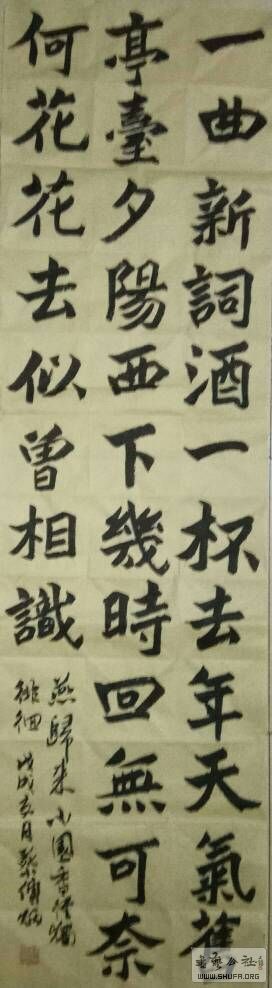 一曲新詞酒一杯去年天氣舊
亭臺夕陽西下幾時回無可奈
何花花去似曾相識
燕歸來小園香徑獨
徘徊 戊戌亥月
书艺公社
WWW.SHUFA.ORG